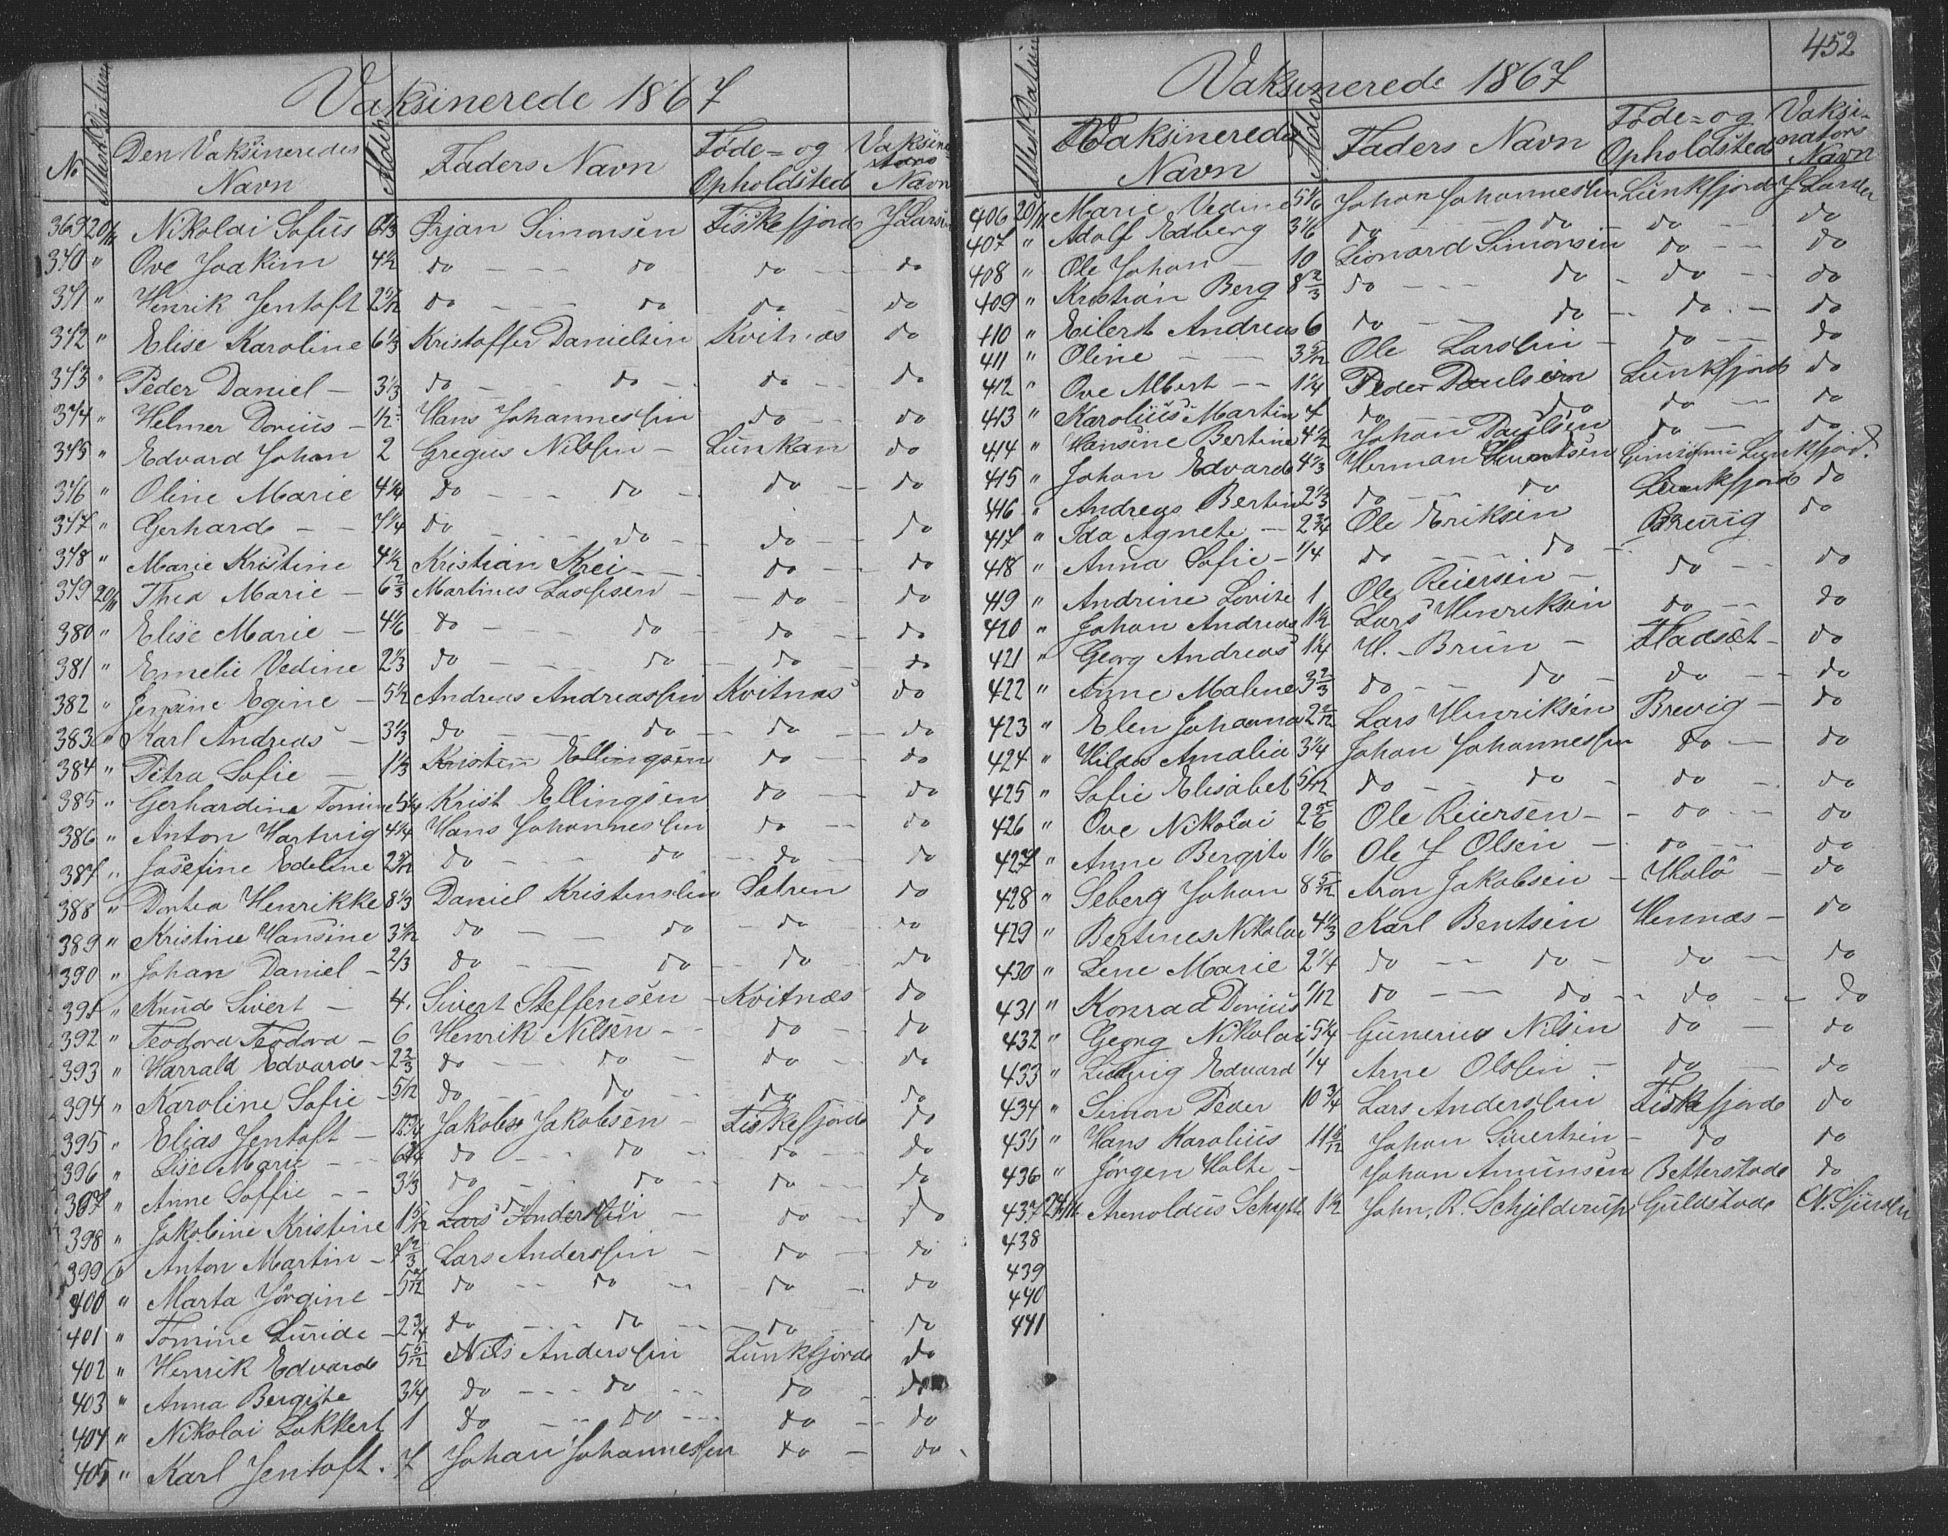 Vaksinerede 1867
No Attest Datum Den Vaksineredes Navn Alder Faders Navn Føde- og Opholdsted Vaksinators Navn
369 20/11 Nikolai Sofus 6 1/3 Ørjan Simonsen Fiskefjord J Larsen
370 " Ove Joakim 4 1/2 do - - - do do - - do
371 " Henrik Jentoft do - - - do do - do
372 " Elise Karoline 6 1/3 Kristoffer Danielsen Kvitnæs do
373 " Peder Daniel - 3 1/3 do - - do - do - - do
374 " Helmer Dorius - Hans Johannessen do - - do
375 " Edvard Johan 2 Gregus Nilssen - Lunkan do
376 " Oline Marie 4 1/4 do - - do - do - do
377 " Gerhard - - 7 1/4 do - - do - - do - - do
378 " Marie Kristine 4 1/2 Kristian Krei - - - do - - do
379 20/11 Thea Marie - 6 2/3 Martines Lassesen - - do - do
380 " Elise Marie - 4 1/6 do - - - do - - do - - do
381 " Emelie Vedine 2 1/3 do - - - do - - do - - do
382 " Jensine Egine - 5 1/2 Andreas Andreassen Kvitnæs do
383 " Karl Andreas - 3 1/3 do - - - do - - do - - do
384 " Petra Sofie - 1 1/3 Kristen Ellingsen do - - do
385 " Gerhardine Tomine 5 1/4 Krist Ellingsen do - - do
386 " Anton Hartvig 4 1/4 Hans Johannessen do - - do
387 " Josefine Edeline do - - - do - - do - - do
388 " Dortea Henrikke 8 1/3 Daniel Kristensen Satren do
389 " Kristine Hansine do - - do - do - - do
390 " Johan Daniel - 2/3 do - - do - - do - - do
391 " Knud Sivert - 4. Sivert Steffensen - Kvitnæs do
392 " Teodora Teodora - 6 Henrik Nilsen - - do - do
393 " Harrald Edvard - 2 2/3 do - - do - do - - do
394 " Karoline Sofie - 5/12 do - - do - do - do
395 " Elias Jentoft - Jakob Jakobsen - Fiskefjord do
396 " Lise Marie - - do - - - do - - do - - do
397 " Anne Soffie - - 3 1/3 do - - - do - - do - - do
398 " Jakobine Kristine 1 5/12 Lars Anderssen - do - - do
399 " Anton Martin - 7 2/3 Lars Anderssen - do - - do
400 " Marta Jørgine - do - - do - - do - - do
401 " Tomine Luride - 2 3/4 do - - - do - - do - do
402 " Henrik Edvard 5 5/12 Nils Anderssen Lunkfjord do
403 " Anna Bergite 3 1/4 do - - - do - - do - do
404 " Nikolai Lokkert 1 do - - - do - - do - - do
405 " Karl Jentoft. 7 Johan Johannessen do - do
452
Vaksinerede 1867
Attest Datum Vaksineredes Navn Alder Faders Navn Føde- og Opholdsted Vaksinators Navn
406 20/11 Marie Vedine 5 1/6 Johan Johannessen Lunkfjord J Larsen
407 " Adolf Edberg 3 1/6 do - - do - do - - do
408 " Ole Johan - 10 Leonard Simonsen do - - do
409 " Kristian Berg 8 2/3 do - - - do - do - - do
410 " Eilert Andreas 6 do - - - do - do - do
411 " Oline - - 3 5/12 Ole Larssen - do - - do
412 " Ove Albert - - 1 1/4 Peder Paulsen Lunkfjord do
413 " Karolius Martin 4 do - - - do do - - do
414 " Hansine Bertine 4 1/2 Johan Paulsen do - - do
415 " Johan Edvard 4 1/3 Herman Lunkfjord
416 " Andreas Bertin 2 1/3 do - - do Lunkfjord do
417 " Ida Agnete - 2 3/4 Ole Eriksen Brevig do
418 " Anna Sofie - 1/4 do - - - do - do - - do
419 " Andrine Lovise 1 Ole Reiersen - do - - do
420 " Johan Andreas 1 1/2 Lars Henriksen
421 " Georg Andreas 1 1/4 H. - Brun - Fladsæt - do
422 " Anne Maline 3 2/3 do - - do - do - - do
423 " Elen Johanna Lars Henriksen Brevig - do
424 " Hilda Amalia 3 1/4 Johan Johannessen do - do
425 " Sofie Elisabet 5/12 do - do - do - - do
426 " Ove Nikolai 2 5/6 Ole Reiersen - - do - - do
427 " Anne Bergite 1 1/6 Ole J Olsen - do - - do
428 " Seberg Johan 8 5/12 Aron Jakobsen - Holø - do
429 " Bertines Nikolai 4 1/3 Karl Bentsen Hennæs - do
430 " Lene Marie 2 1/4 do - - do - do - - do
431 " Konrad Dorius 1/12 do - - do - do - - do
432 " Georg Nikolai 5 1/4 Gunerius Nilsen do - do
433 " Ludvig Edvard 1/4 Arne Olssen - do - do
434 " Simon Peder 10 3/4 Lars Anderssen Fiskefjord do
435 " Hans Karolius Johan Sivertsen - do do
436 " Jørgen Holte - Johan Amunsen Betterstade do
437 Arnoldus Schytt 1 1/2 John. R. Schjelderup Guldstade
438
439
440
441